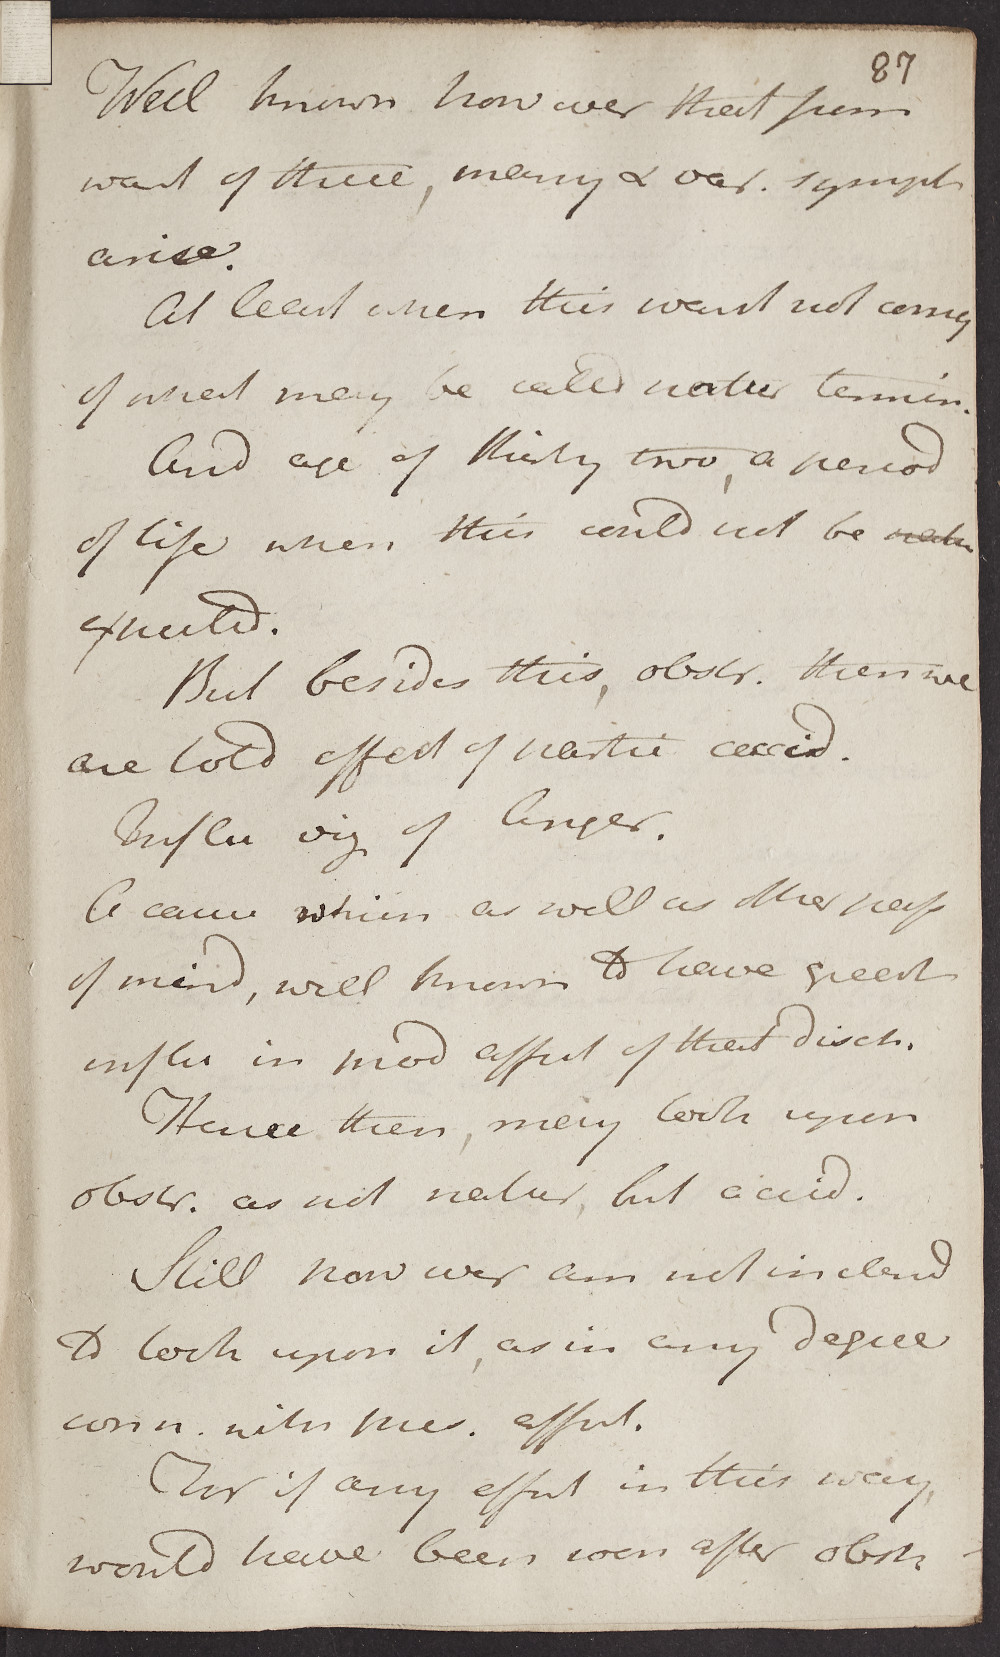 87
Well known however that from
want of these, many & var. sympt
arise.
At least when this want not conseq
of what may be called natur termin.
And age of thirty two, a period
of life when this could not be natu
expected.
But besides this, obstr. then we
are told effect of partic accid.
Influ viz of Anger.
A cause which as well as other pass
of mind, well known to have great
influ in prod affect of that disch.
Hence then, may look upon
obstr. as not natur, but accid.
Still however am not inclend
to look upon it, as in any degree
conn. with pres. affect.
For if any effect in this way,
would have been soon after obstr